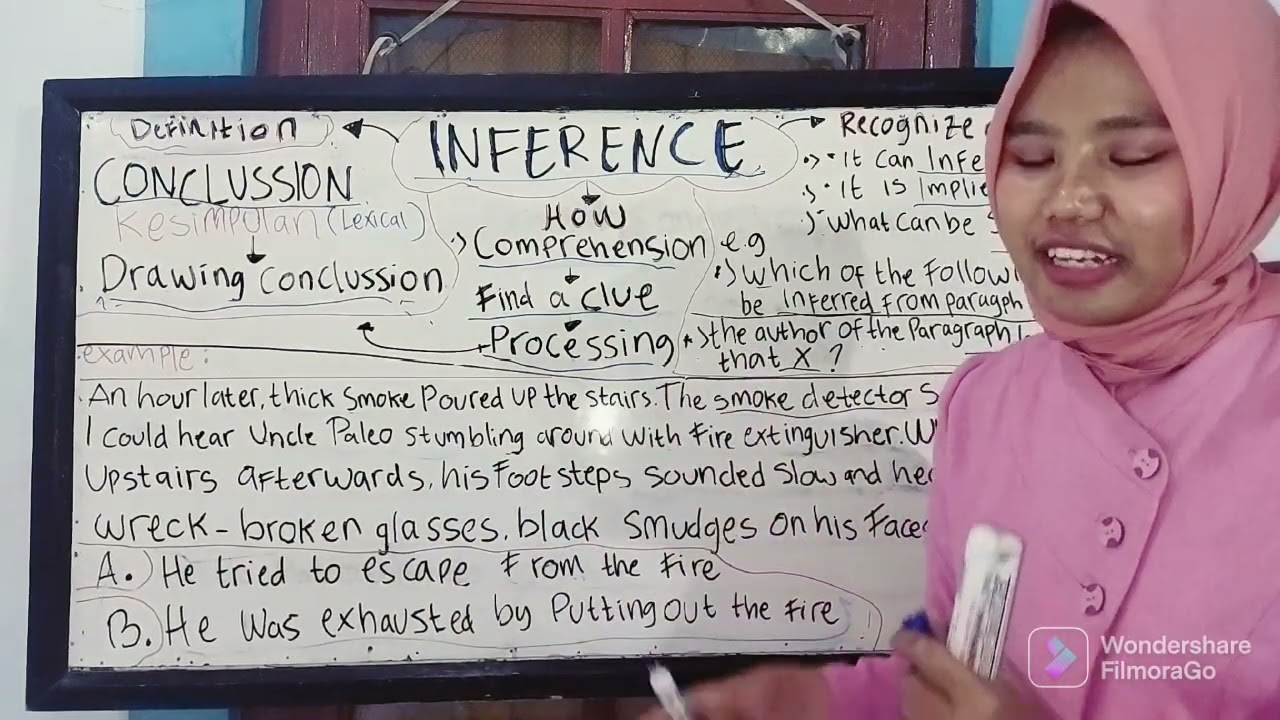 Definition
CONCLUSSION
Kesimpulan (Lexical)
Drawing conclussion
INFERENCE
How
Comprehension
Find a clue
Processing
Recognize
It can Infe
It is Implie
What can be
e.g
Which of the Followi
be Inferred from paragph
the author of the Paragraph
that X ?
example:
An hour later, thick smoke Poured up the stairs. The smoke detector S
I could hear Uncle Paleo stumbling around with Fire extinguisher. W
Upstairs afterwards, his Footsteps sounded slow and hea
wreck - broken glasses, black smudges on his Face
A. He tried to escape From the Fire
B. He was exhausted by Putting out the Fire
Wondershare
FilmoraGo